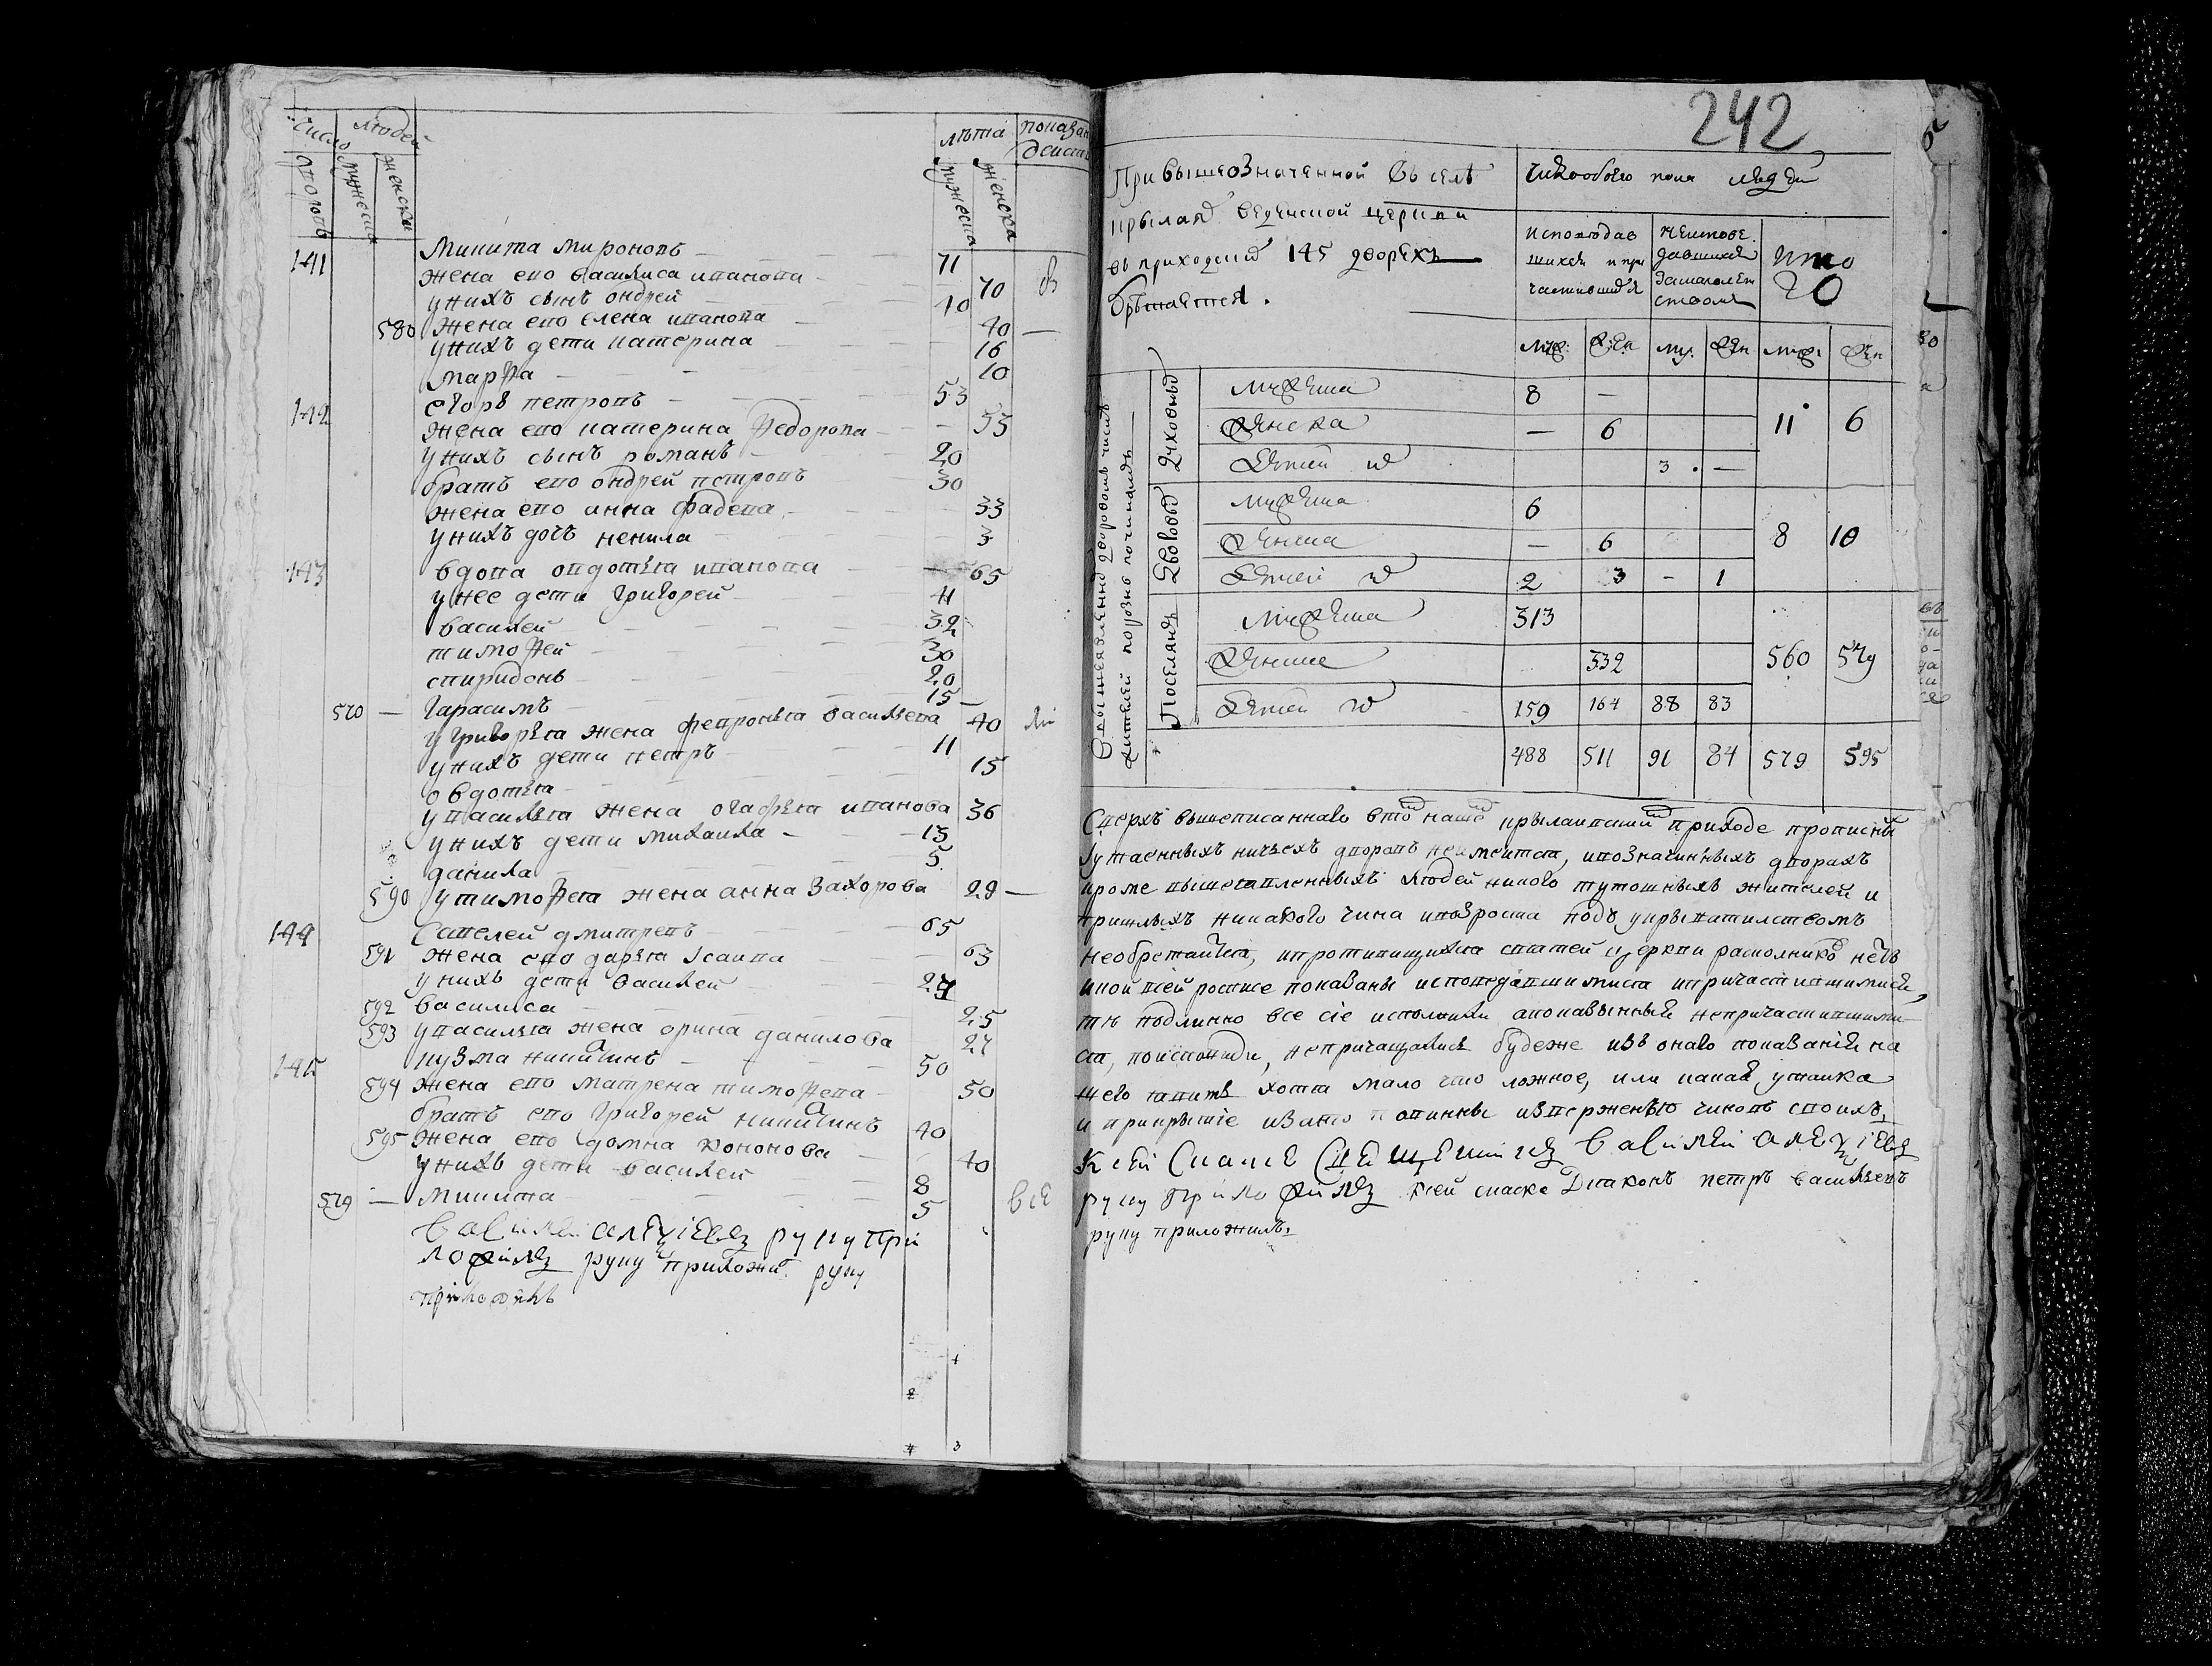 число людей лѣта показан
дворовъ мужеска женска мужеска женска действ
141 Микита Мироновъ 71
жена ево василиса иванова 70
унихъ сынъ ондрей 40
580 жена ево елена иванова 40 —
унихъ дети катерина 16
марѳа 10
142 егоръ петровъ 53
жена ево катерина Ѳедорова 53
унихъ сынъ романъ 20
братъ ево ондрей петровъ 30
жена ево анна фадева 33
унихъ дочь ненила 3
143 вдова овдотья иванова 65
унее дети григорей 41
василей 32
тимоѳей 30
спиридонъ 20
570 — Гарасимъ 15 —
угригорья жена февронья васильева 40
унихъ дети петръ 11
овдотья 15
увасилья жена огафья иванова 36
унихъ дети михаила 13
данила 5
590 утимоѳея жена анна Захорова 29 —
144 Савелей дмитревъ 65
591 жена ево дарья Исаива 63
унихъ дети василей 27
592 василиса 25
593 увасилья жена орина данилова 27
145 кузма никитинъ 50
594 жена ево матрена тимоѳева 50
братъ ево григорей никитинъ 40
595 жена ево домна кононова 40
унихъ дети василей 8
579 — микита 5 все
василей алеѯіевъ руку при
ложилъ руку приложи руку
приложилъ
242
При вышеозначенной въ селѣ
крылае веденской церкви
въ приходских 145 дворехъ
обрѣтается.
число обоего пола людей
исповедав
шихся и при
частившихся
неиспове
давшихся
замалолет
ством
итого
муж: жен му. жен муж: жен
Вышеявленных дворовомъ числѣ
жителей порознь починамъ
Духовных
мужеска 8 —
женска — 6 11 6
детей 3 —
мужеска 6
женска — 6 8 10
детей 2 3 - 1
Поселянъ
мужеска 313
женска 332 560 579
детей 159 164 88 83
488 511 91 84 579 595
Сверхъ вышеписаннаго втом нашем крылаивском приходе прописных
утаенныхъ ничьехъ дворовъ неимеитса, ивозначинныхъ дворахъ
кроме вышеявленныхъ людей никого тутошныхъ жителей и
пришлыхъ никакого чина ивозроста подъ укрывателствомъ
необретаитса, ипротивищихся святей церкви расколников нетъ
икои всей росписе показаны исповедавшимися ипричастившимися,
тѣ подлинно все сіе исполнили апоказынныя непричастившими
ся, поисповеди, непричащались будеже изъ онаго показанія на
шего явитъ хотя мало что ложное, или какая утайка
и прикрытіе изато повинны изверженью чиновъ своихъ.
К сей скаске священникъ василей алеѯіевъ
руку приложилъ ксей скаске Диаконъ петръ васильевъ
руку приложилъ.